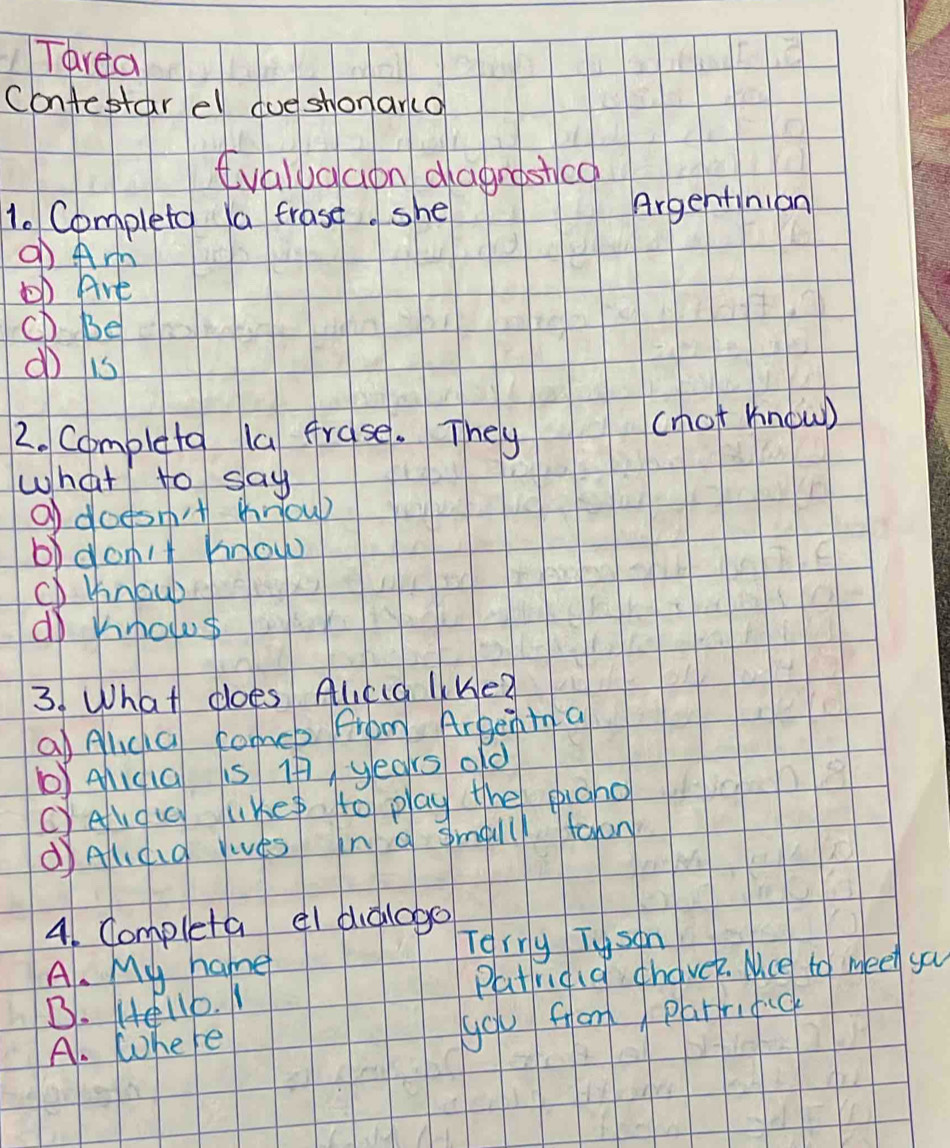 Tarea
Contestar el cuestionario
Evaluacion diagnostica
1. Completa la frase. she Argentinian
a) Am
b) Are
c) Be
d) is
2. Completa la frase. They (not know)
what to say
a) doesn't know
b) don't know
c) know
d) knows
3. What does Alicia like?
a) Alicia comes from Argentna
b) Alicia is 17, years old
c) Alicia likes to play the piano
d) Alicia lives in a smalll town
4. Completa el dialogo
A. My name Terry Tyson
B. Hello. I Patricia chavez. Nice to meet you
A. Where you from, Patricia